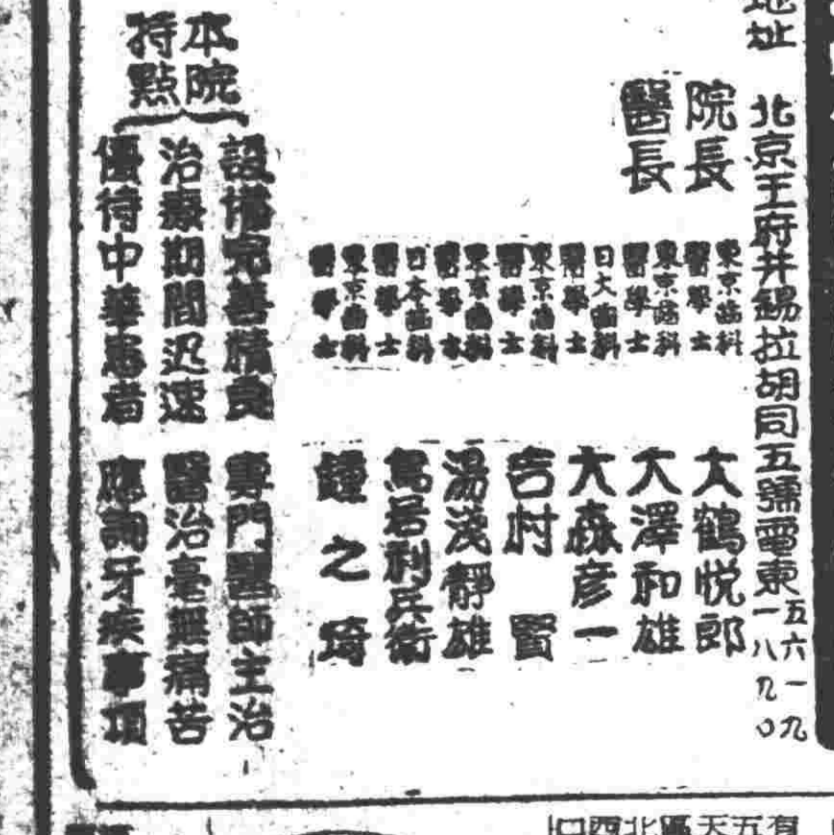 地址 北京王府井錫拉胡同五號電東五六一九
一八九〇
院長 東京齒科醫學士 大鶴悦郎
醫長 東京齒科醫學士 大澤和雄
日大齒科醫學士 大森彦一
東京齒科醫學士 吉村 賢
東京齒科醫學士 湯淺靜雄
日本齒科醫學士 鳥居利兵衛
東京齒科醫學士 鍾之琦
本院
特點
設備完善精良 專門醫師主治
治療期間迅速 醫治毫無痛苦
優待中華患者 應詢牙疾事項